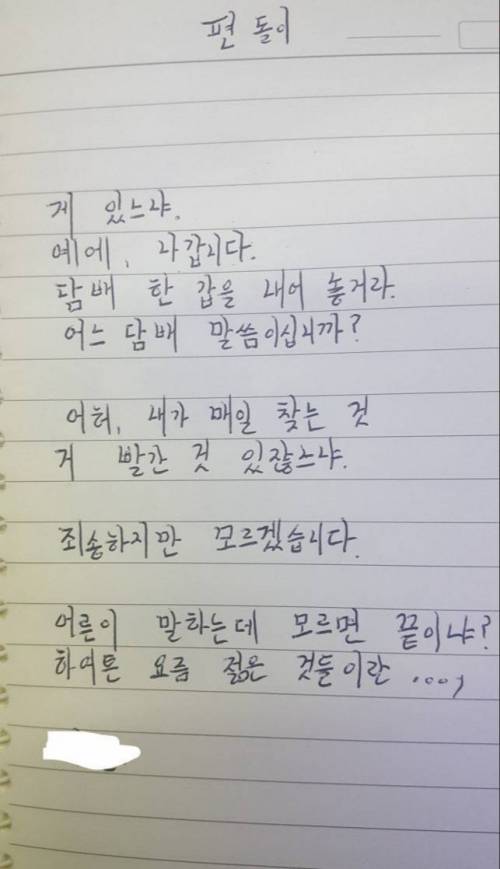 편 돌이
게 있느냐.
예에, 나갑니다.
담배 한 갑을 내어 놓거라.
어느 담배 말씀이십니까?
어허, 내가 매일 찾는 것
거 빨간 것 있잖느냐.
죄송하지만 모르겠습니다.
어른이 말하는데 모르면 끝이냐?
하여튼 요즘 젊은 것들이란 ....,